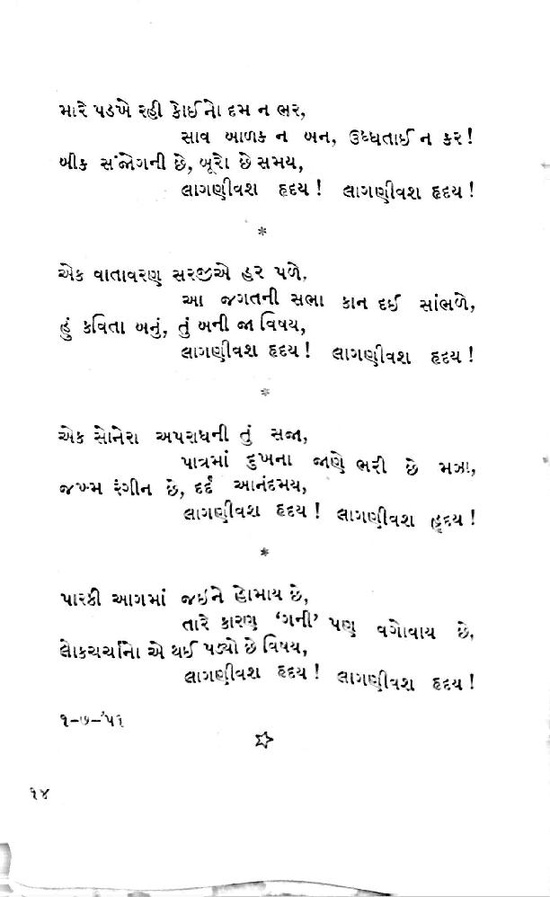 મારે પડખે રહી કોઈનો દમ ન ભર,
સાવ બાળક ન બન, ઉધ્ધતાઈ ન કર!
બીક સંજોગની છે, બૂરો છે સમય,
લાગણીવશ હૃદય! લાગણીવશ હૃદય!
*
એક વાતાવરણ સરજીએ હર પળે,
આ જગતની સભા કાન દઈ સાંભળે,
હું કવિતા બનું, તું બની જા વિષય,
લાગણીવશ હૃદય! લાગણીવશ હૃદય!
*
એક સોનેરા અપરાધની તું સજા,
પાત્રમાં દુખના જાણે ભરી છે મઝા,
જખ્મ રંગીન છે, દર્દ આનંદમય,
લાગણીવશ હૃદય! લાગણીવશ હૃદય!
*
પારકી આગમાં જઈને હોમાય છે,
તારે કારણ ‘ગની’ પણ વગોવાય છે,
લોકચર્ચાનો એ થઈ પડ્યો છે વિષય,
લાગણીવશ હૃદય! લાગણીવશ હૃદય!
૧-૭-’૫૧
૧૪